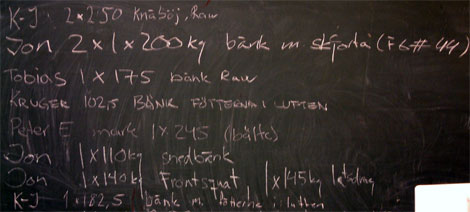 K-J: 2x250 Knäböj, Raw
Jon 2x1x200kg bänk m skjorta (F6#44)
Tobias 1x175 bänk Raw
KRUGER 102,5 BÄNK FÖTTERNA I LUFTEN
Peter E mark 1x245 (bälte)
Jon 1x110kg snedbänk
Jon 1x140kg Frontsquat 1x145kg
K-J 1x182,5 bänk m. fötterna i luften